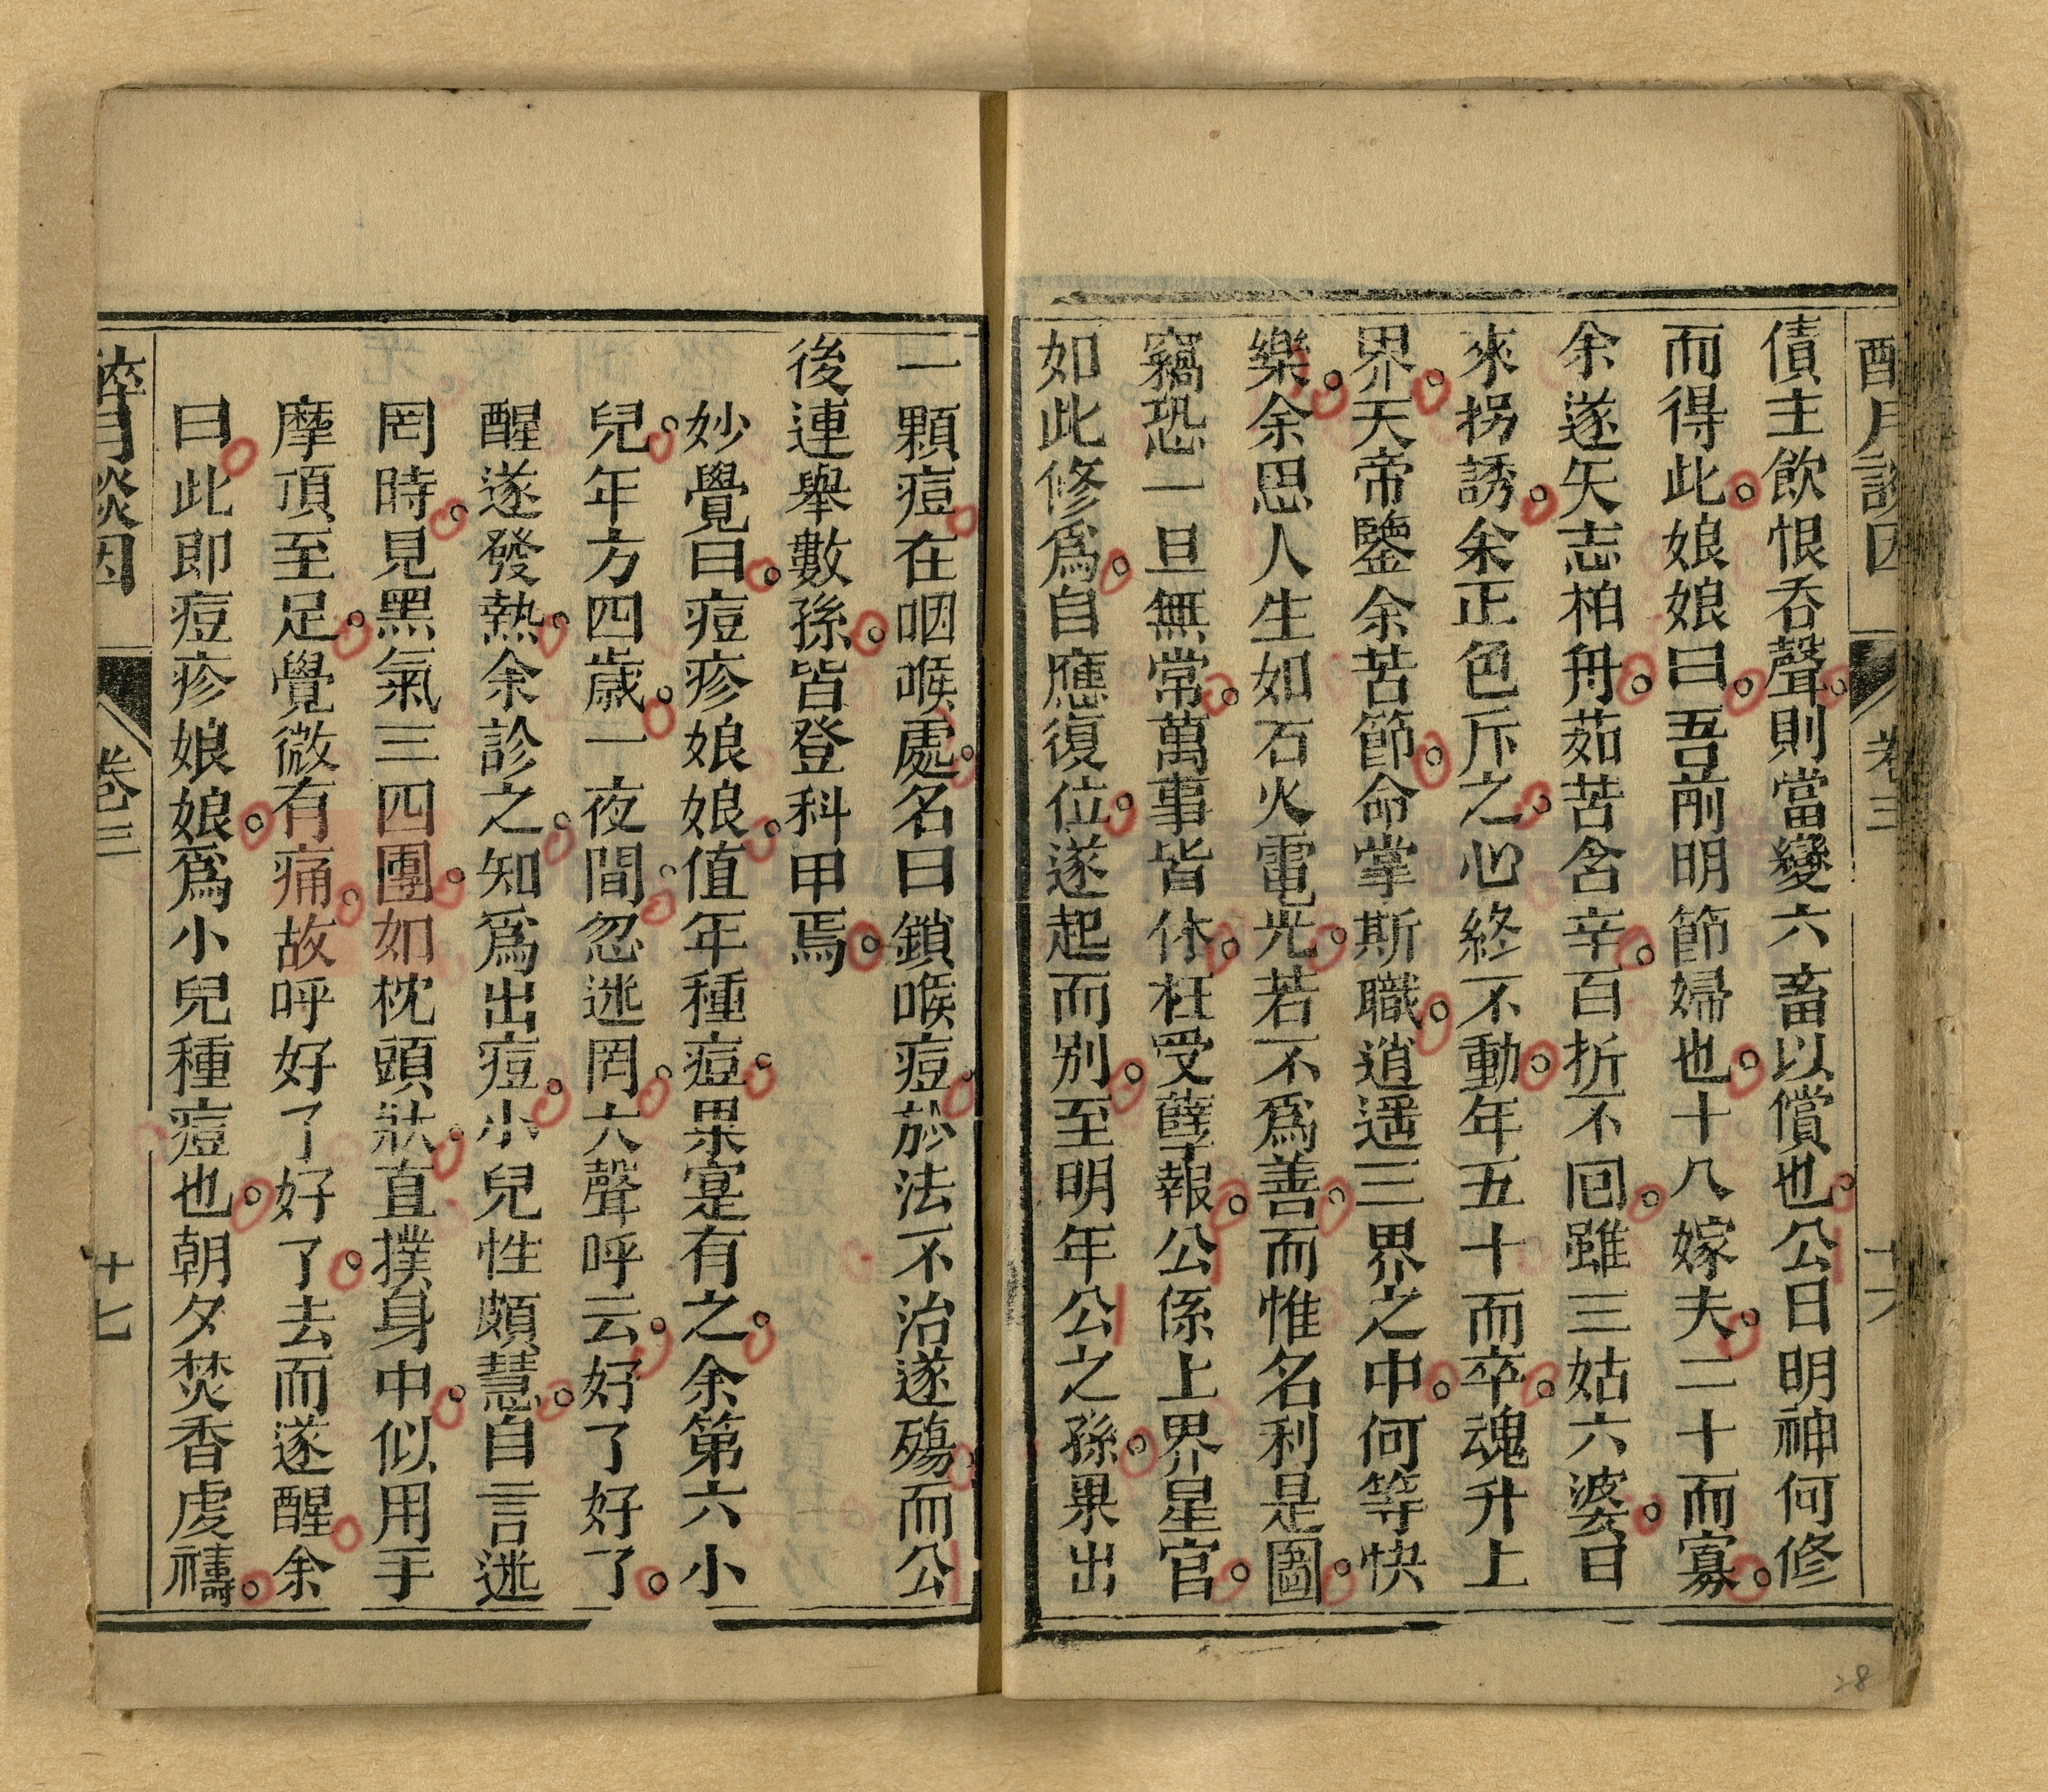 醉月談因 卷三 十六
債主飲恨吞聲則當變六畜以償也公曰明神何修
而得此娘娘曰吾前明節婦也十八嫁夫二十而寡
余遂矢志柏舟茹苦含辛百折不回雖三姑六婆日
來拐誘余正色斥之心終不動年五十而卒魂升上
界天帝鑒余苦節命掌斯職逍遥三界之中何等快
樂余思人生如石火電光若不爲善而惟名利是圖
竊恐一旦無常萬事皆休枉受孽報公係上界星官
如此修爲自應復位遂起而别至明年公之孫果出
一顆痘在咽喉處名曰鎖喉痘於法不治遂殤而公
後連舉數孫皆登科甲焉
妙覺曰痘疹娘娘值年種痘果寔有之余第六小
兒年方四歲一夜間忽迷罔大聲呼云好了好了
醒遂發熱余診之知爲出痘小兒性頗慧自言迷
罔時見黑氣三四團如枕頭狀直撲身中似用手
摩頂至足覺微有痛故呼好了好了去而遂醒余
曰此即痘疹娘娘爲小兒種痘也朝夕焚香虔禱
醉月談因 卷三 十七
28